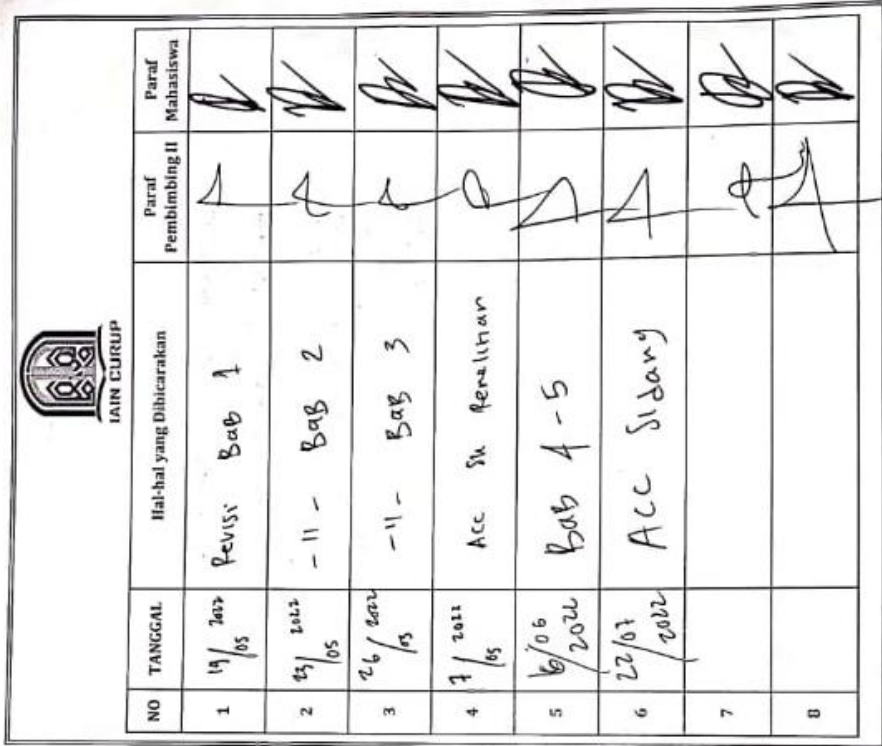 IAIN CURUP
NO TANGGAL Hal-hal yang Dibicarakan Paraf Pembimbing II Paraf Mahasiswa
1 19/05 2022 Revisi Bab 1
2 23/05 2022 -11- Bab 2
3 26/05 2022 -11- Bab 3
4 7/05 2022 Acc SK Penelitian
5 /06 2022 Bab 4-5
6 22/07 2022 ACC Sidang
7
8